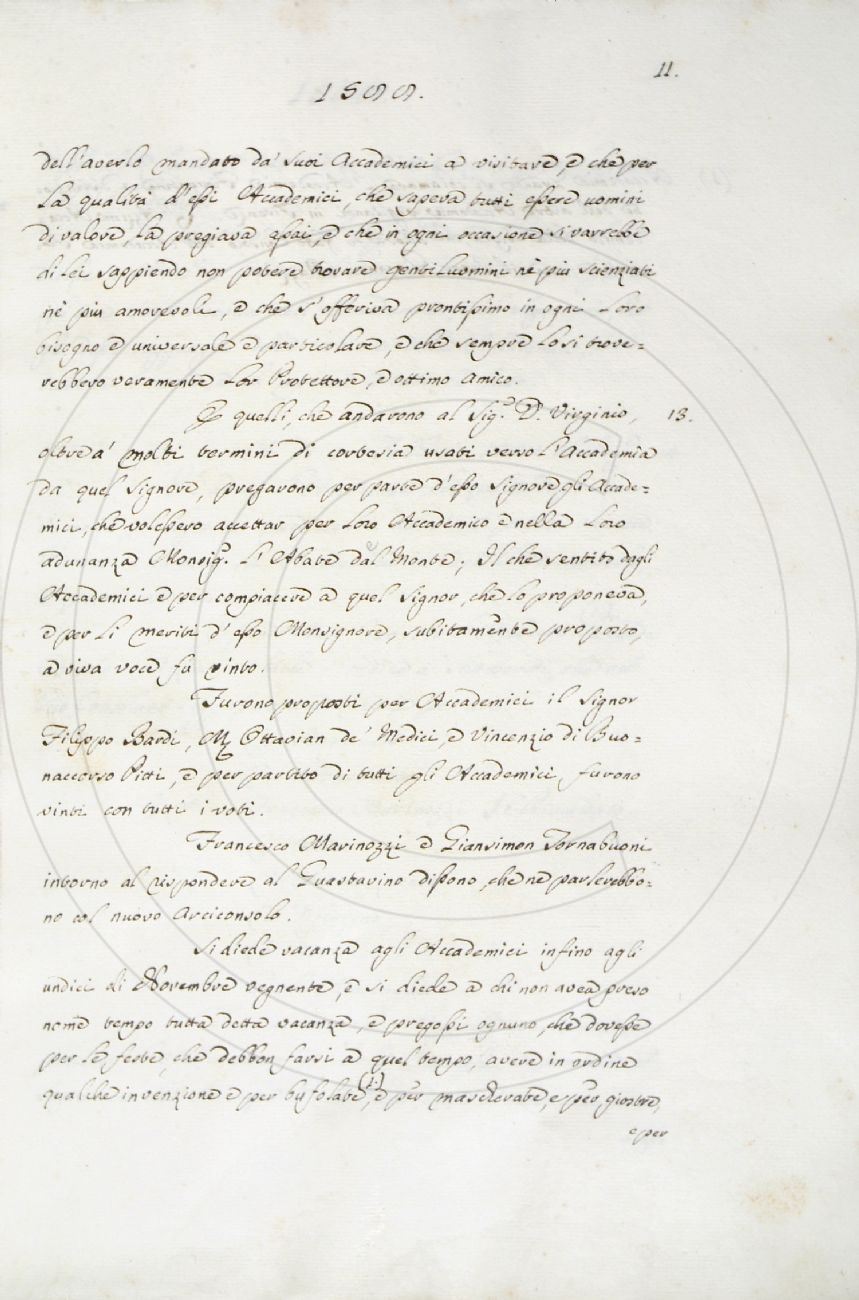 11.
1588.
dell'averlo mandato da' suoi Accademici a visitare, e che per
la qualità d'essi Accademici, che sapeva tutti essere uomini
di valore, la pregiava assai, e che in ogni occasione si varrebbe
di lei sappiendo non potere trovare gentiluomini nè più scienziati
nè più amorevoli, e che s'offeriva prontissimo in ogni loro
bisogno e universale e particolare, e che sempre lo si trove=
rebbero veramente lor Protettore, e ottimo amico.
E quelli, che andarono al Sig.re D. Virginio, 13.
oltre a' molti termini di cortesia usati verso l'Accademia
da quel Signore, pregarono per parte d'esso Signore gli Accade=
mici, che volessero accettar per loro Accademico e nella loro
adunanza Monsig.re l'Abate dal Monte; Il che sentito dagli
Accademici e per compiacere a quel Signor, che lo proponeva,
e per li meriti d'esso Monsignore, subitamente proposto,
a viva voce fu vinto.
Furono proposti per Accademici il Signor
Filippo Bardi, M. Ottavian de' Medici, e Vincenzio di Buo=
naccorso Pitti, e per partito di tutti gli Accademici, furono
vinti con tutti i voti.
Francesco Marinozzi e Giansimon Tornabuoni
intorno al rispondere al Guastavino dissono, che ne parlerebbo=
no col nuovo Arciconsolo.
Si diede vacanza agli Accademici infino agli
undici di Novembre vegnente, e si diede a chi non avea preso
nome tempo tutta detta vacanza, e pregossi ognuno, che dovesse
per le feste, che debbon farsi a quel tempo, avere in ordine
qualche invenzione e per bufolate (1.), e per mascherate, e per giostre,
e per